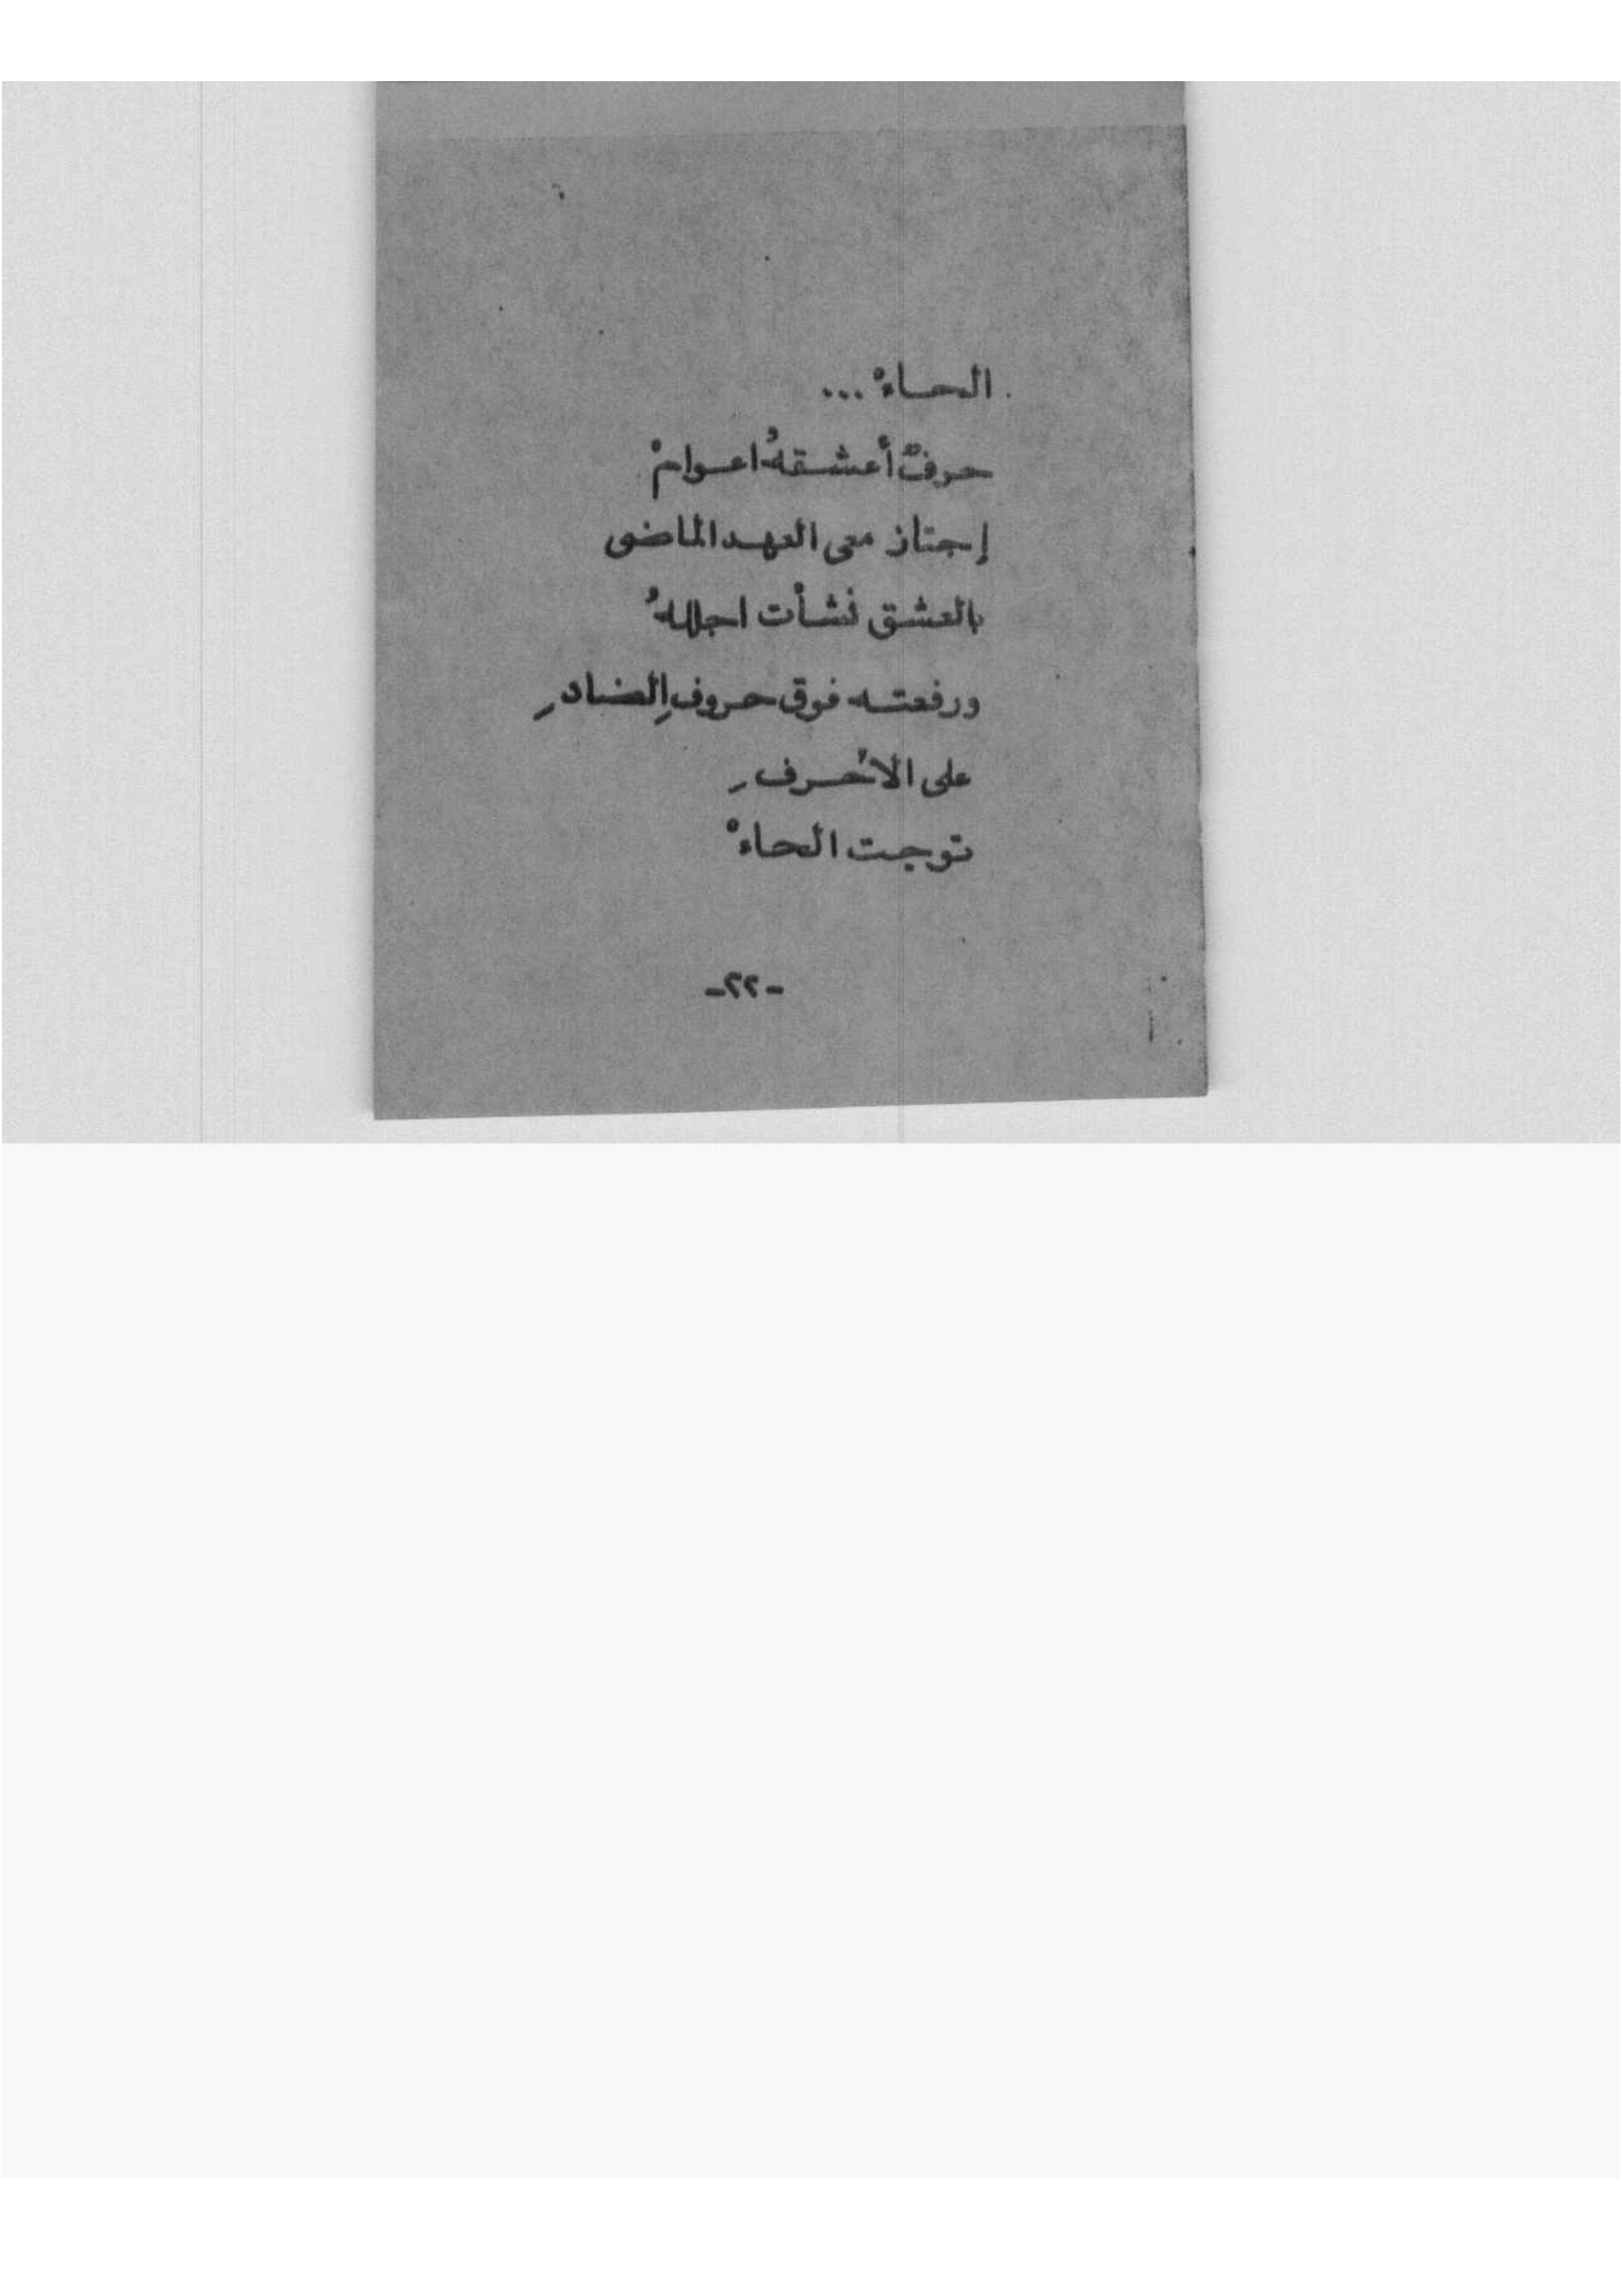 الحاءْ ...
حرفٌ أعشقهُ اعوامْ
إجتاز معى العهد الماضى
بالعشق نشأت اجللهُ
ورفعته فوق حروفِ الضادِ
على الأحرفِ
توجت الحاءْ
-٢٢-